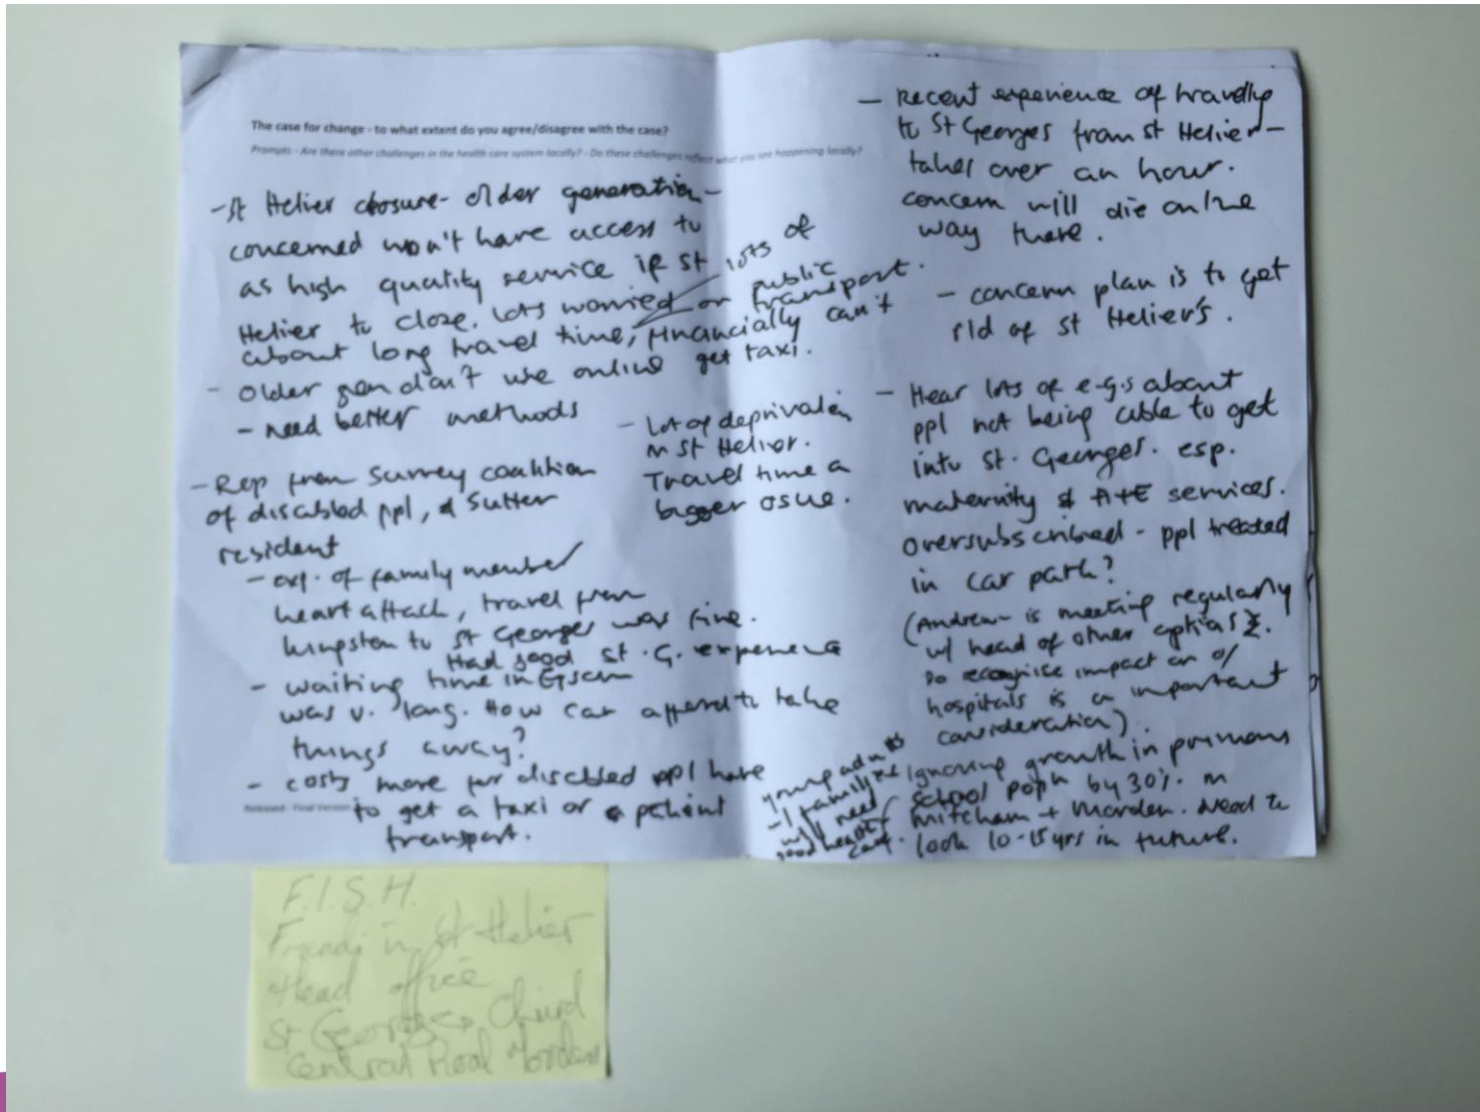 The case for change - to what extent do you agree/disagree with the case?
Prompts - Are there other challenges in the health care system locally? - Do these challenges reflect what you see happening locally?
- St Helier closure - older generation -
concerned won't have access to
as high quality service if St
Helier to close. Lots worried
about long travel time, financially can't
get taxi.
lots of
on public
transport.
- Older gen don't use online
- need better methods
- Lot of deprivation
in St Helier.
Travel time a
bigger issue.
- Rep from Surrey coalition
of disabled ppl, & Sutton
resident
- exp. of family member
heart attack, travel from
kingston to St Georges was fine.
Had good St. G. experience
- waiting time in
was v. long. How can afford to take
things away?
- costs more for disabled ppl have
to get a taxi or a patient
transport.
Released - Final Version
- Recent experience of travelling
to St Georges from St Helier -
takes over an hour.
concern will die on the
way there.
- concern plan is to get
rid of St Helier's.
- Hear lots of e.g.s about
ppl not being able to get
into St. Georges. esp.
maternity & A+E services.
oversubscribed - ppl treated
in car park?
(Andrew is meeting regularly
w/ head of other
Do recognise impact on o/
hospitals is a important
consideration).
- Ignoring growth in primary
school popn by 30% in
Mitcham + Morden. Need to
look 10-15 yrs in future.
young adults
+ families
will need
good health
care.
F.I.S.H.
Friends in St Helier
Head office
St Georges Church
Central Road Morden